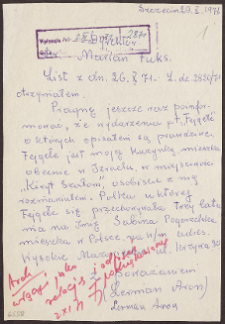 Szczecin 29.X.1971
1
DYREKTOR
Marian Fuks.
List z dn. 26.X 71. L. dz 2820/71
otrzymałem.
Pragnę jeszcze raz poinfor-
mować, że wydarzenia pt. Fejgele
o których opisałem są prawdziwe
Fejgele jest moją kuzynką mieszka
obecnie w Izraelu, w miejscowości
"Kirat Bialik", osobiście z nią
rozmawiałem. Polka u której
Fejgele się przechowała trzy lata
ma na imię Sabina
mieszka w Polsce, pod n/w adres.
Wysokie ul.
Arch
jako
relację
Z poważaniem
(Lerman Aron)
Lerman Aron
6550